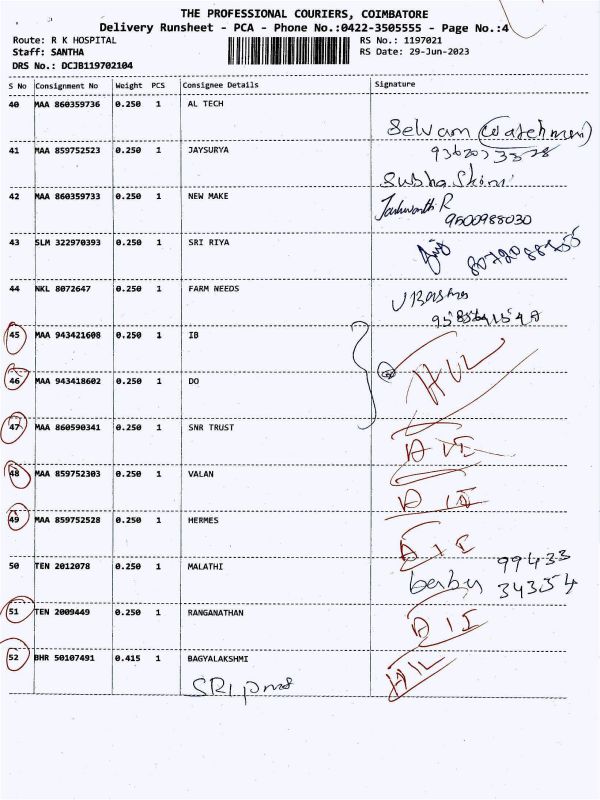 THE PROFESSIONAL COURIERS, COIMBATORE
Delivery Runsheet - PCA - Phone No.:0422-3505555 - Page No.:4
Route: R K HOSPITAL RS No.: 1197021
Staff: SANTHA RS Date: 29-Jun-2023
DRS No.: DCJB119702104
S No Consignment No Weight PCS Consignee Details Signature
40 MAA 860359736 0.250 1 AL TECH
Selvam (Watchmen)
41 MAA 859752523 0.250 1 JAYSURYA
Subha
42 MAA 860359733 0.250 1 NEW MAKE
9600988030
43 SLM 322970393 0.250 1 SRI RIYA
44 NKL 8072647 0.250 1 FARM NEEDS
45 MAA 943421608 0.250 1 IB
46 MAA 943418602 0.250 1 DO
47 MAA 860590341 0.250 1 SNR TRUST
48 MAA 859752303 0.250 1 VALAN
49 MAA 859752528 0.250 1 HERMES
50 TEN 2012078 0.250 1 MALATHI 99433
34354
51 TEN 2009449 0.250 1 RANGANATHAN
52 BHR 50107491 0.415 1 BAGYALAKSHMI